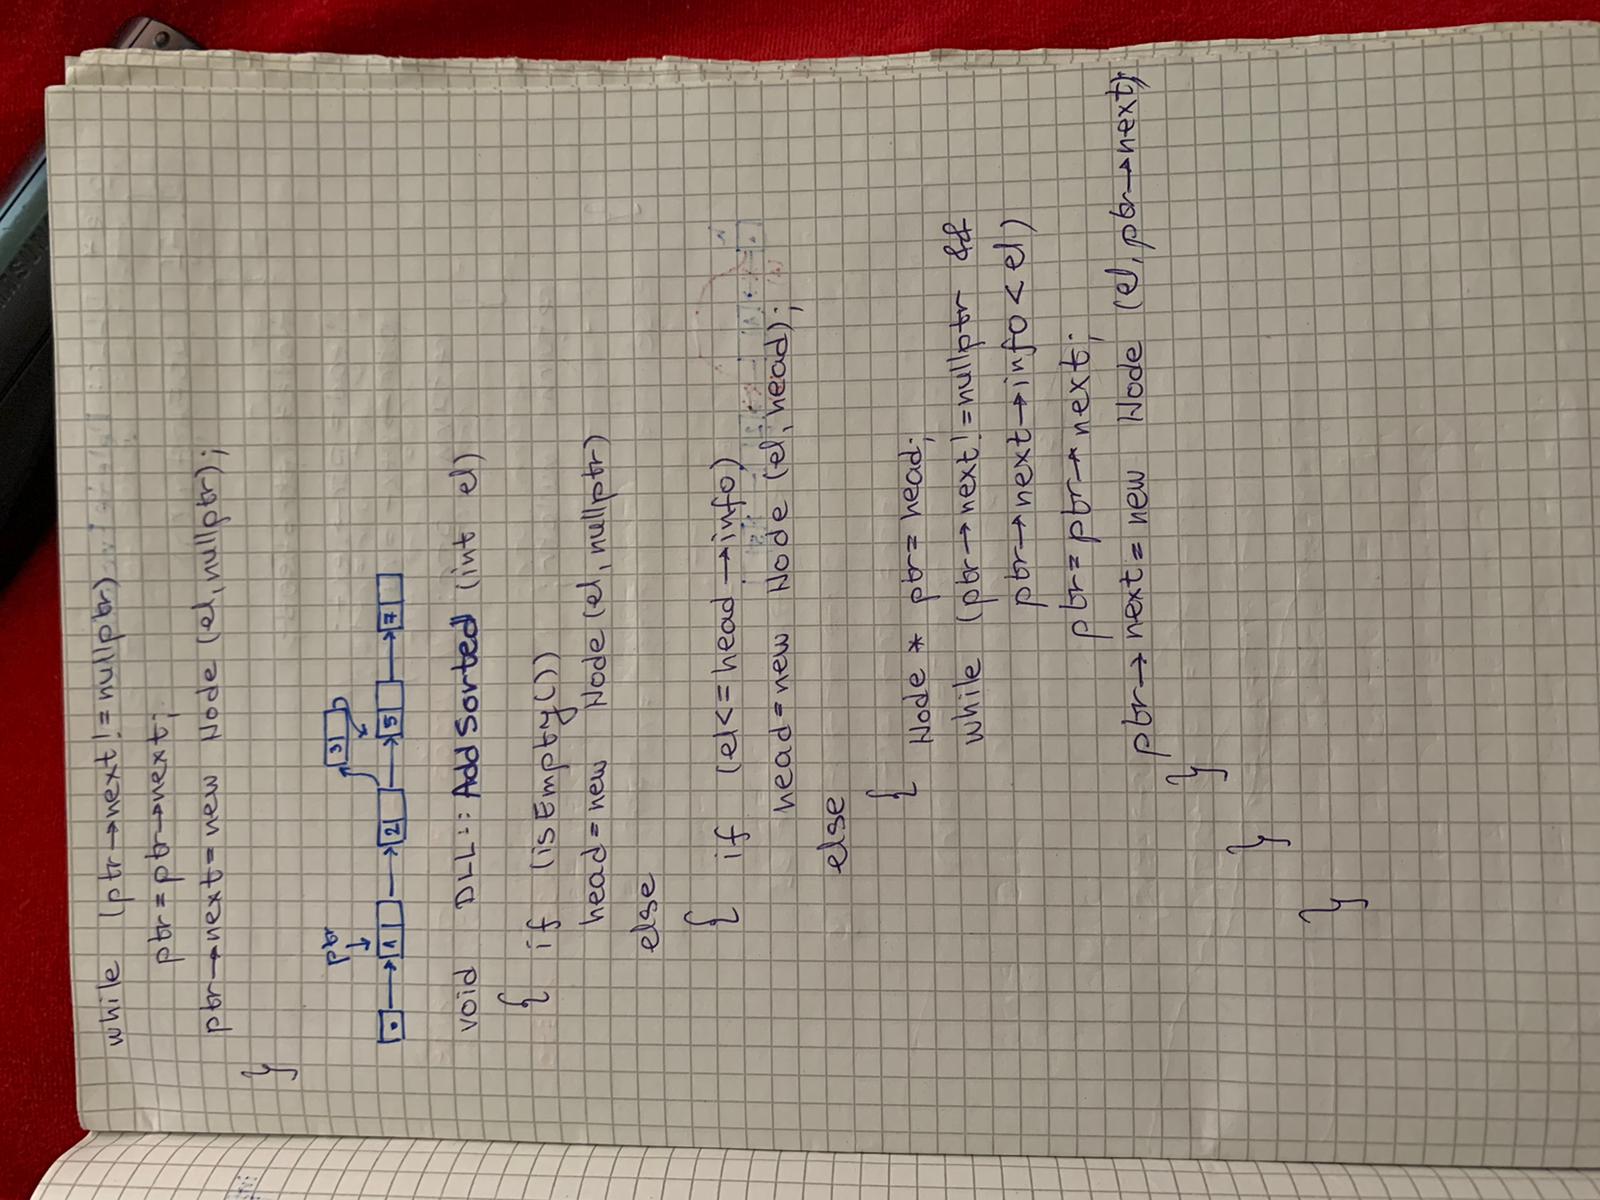 while (ptr→next!=nullptr)
ptr=ptr→next;
ptr→next=new Node (el,nullptr);
}
ptr
3
1 2 5 7
void DLL::AddSorted (int el)
{ if (isEmpty())
head=new Node(el,nullptr)
else
{ if (el<=head→info)
head=new Node (el,head);
else
{ Node * ptr=head;
while (ptr→next!=nullptr &&
ptr→next→info<el)
ptr=ptr→next;
ptr→next=new Node (el,ptr→next);
}
}
}